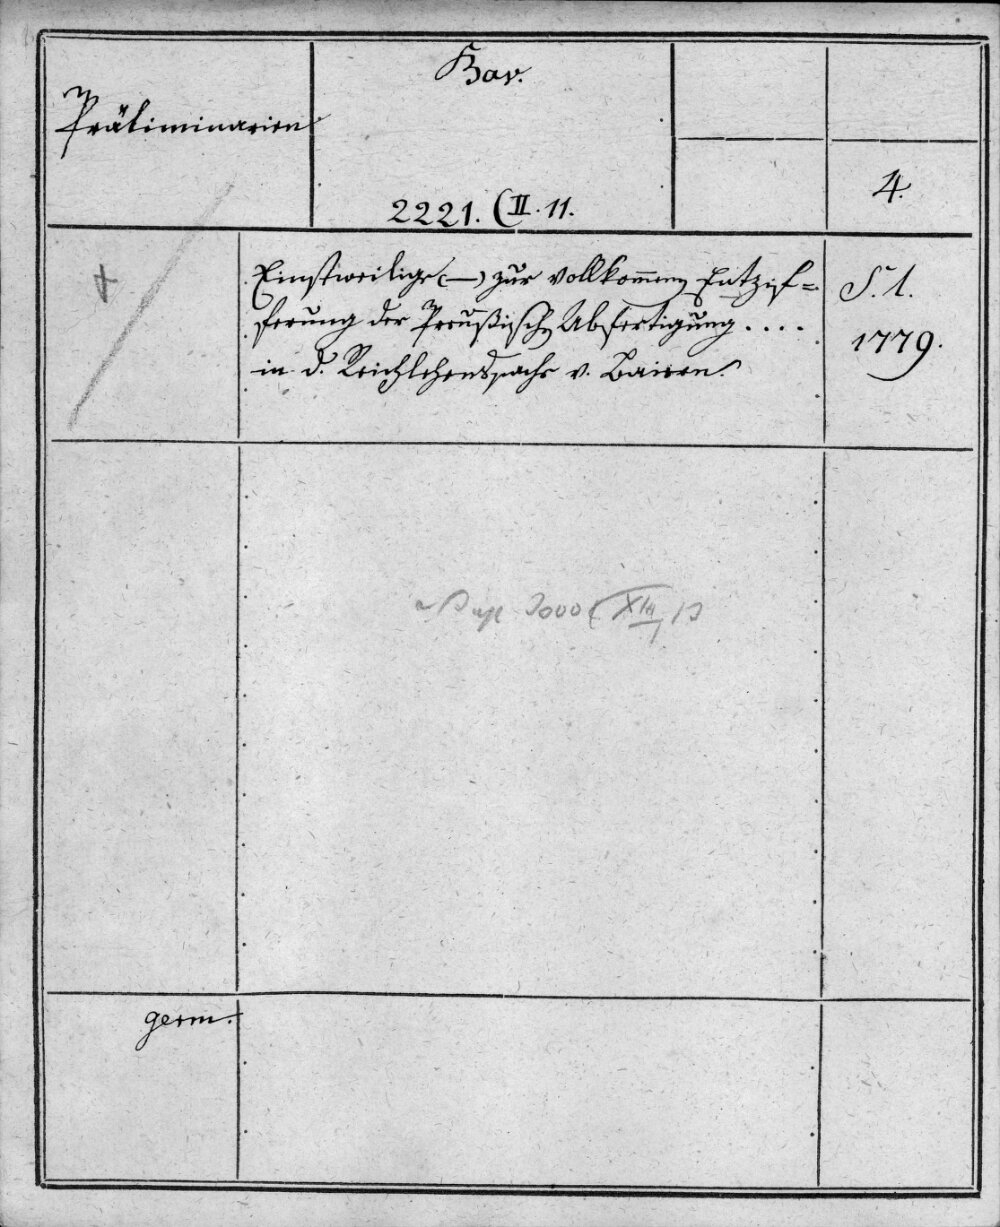 Bav.
Präliminarien
4.
2221. (II. 11.
+
Einstweilige (—) zur vollkom̄enen Entzif=
ferung der Preußischen Abfertigung....
in d. Reichslehenssache v. Baiern.
S. l.
1779.
germ.